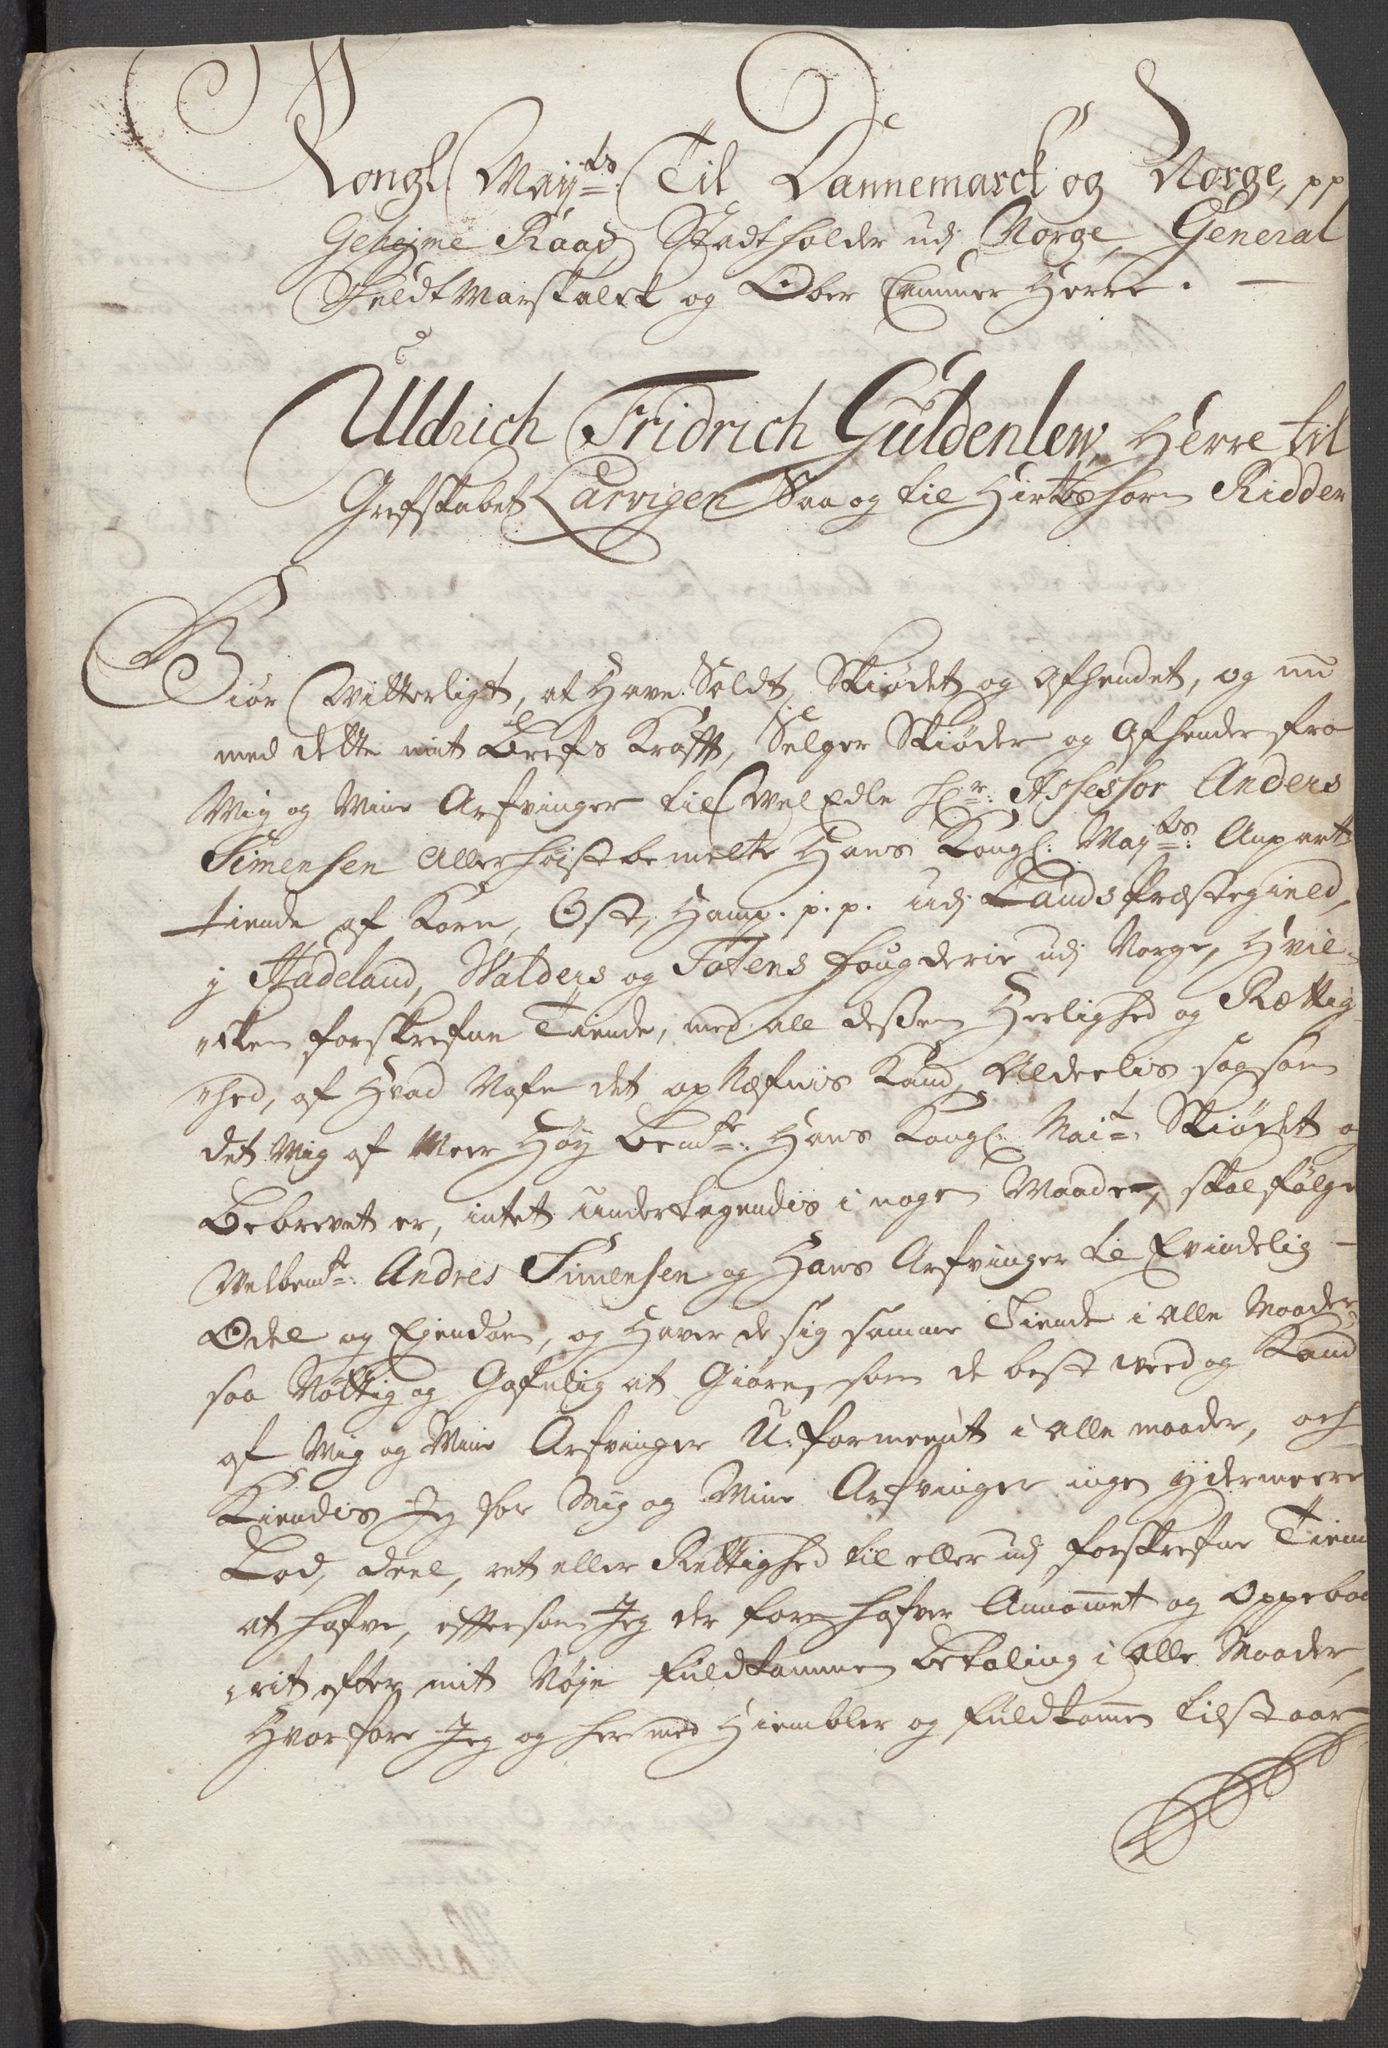 Kongl. Maÿ.ts Til Dannemarck og Norge, pp
Geheime Raad, Stadtholder udj Norge, General
FeldtMarskalck og Ober Cammer Herre.
Uldrich Fridrich Guldenlew, Herre til
Grefskabet Larvigen Saa og til Hirtsholm Ridder
Giør Witterligt, at Have Soldt, Skiødet og Afhendet, og nu
med dette mit Brefs Krafft, Selger Skiøder og Afhender fra
Mig og Mine Arfvinger til WelEdle Hr: Assessor Anders
Simensen Allerhøistbemelte Hans Kongl: Maj.ts: Anpart
tiende af Korn, Ost, Hamp. p. p. udj Lands Præstegield,
j Hadeland, Walders og Totens fougderie udj Norge, Hvil-
cken forskrefne Tiende, med all dessen Herlighed og Rættig
hed, af Hvad Nafn det op Næfnis Kand, Aldeelis saasom
det Mig af Meer Høy Bemte: Hans Kongl: Mait: Skiødet og
Bebrevet er, intet undertagendis i nogen Maader, skal følge
Welbemte: Andres Simensen og Hans Arfvinger til Evindelig
Odel og Ejendom, og Haver de sig samme Tiende i Alle Maader
saa Nøttig og Gafnlig at Giøre, som de best weed og Kand
af Mig og Mine Arfvinger U:formeent i Alle maader, och
Kiendis Jeg for Mig og Mine Arfvinger ingen ydermeere
Lod, deel, ret eller Rettighed til eller udj forskrefne Tiende
at hafve, effersom Jeg der for hafver Annammet og Oppebaa
rit efter mit Nøje fuldkommen betaling i Alle Maader,
Hvorfore Jeg og hermed Hiembler og fuldkommen tilstaar